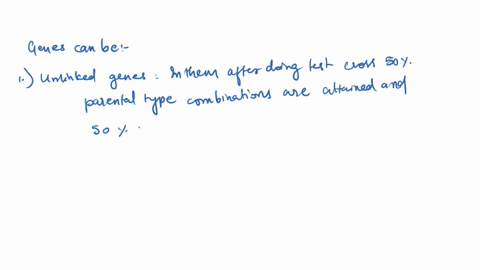 Genes can be:-
1.) Unlinked genes : In them after doing test cross 50%.
parental type combinations are attained and
50 % .